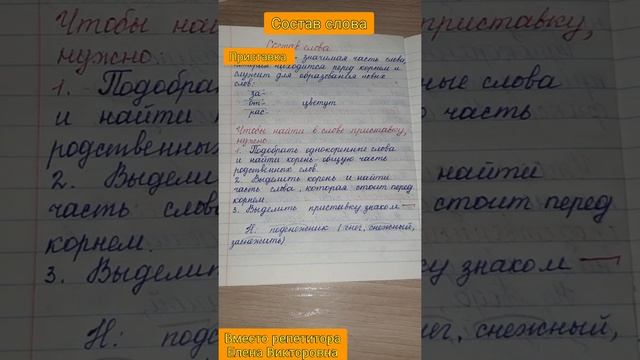 Состав слова
Состав слова
Приставка
- значимая часть слова,
которая находится перед корнем и
служит для образования новых
слов:
за-
от- цветут
рас-
Чтобы найти в слове приставку,
нужно
1. Подобрать однокоренные слова
и найти корень - общую часть
родственных слов.
2. Выделить корень и найти
часть слова, которая стоит перед
корнем
3. Выделить приставку знаком
Н: подснежники (снег, снежный,
заснежить)
Чтобы найти
приставку,
нужно
1. Подобрат
ные слова
и найти ко
часть
родственных
2. Выдели
найти
часть слов
стоит перед
корнем.
3. Выделит
ку знаком
Н: подс
ег, снежный,
Вместо репетитора
Елена Викторовна